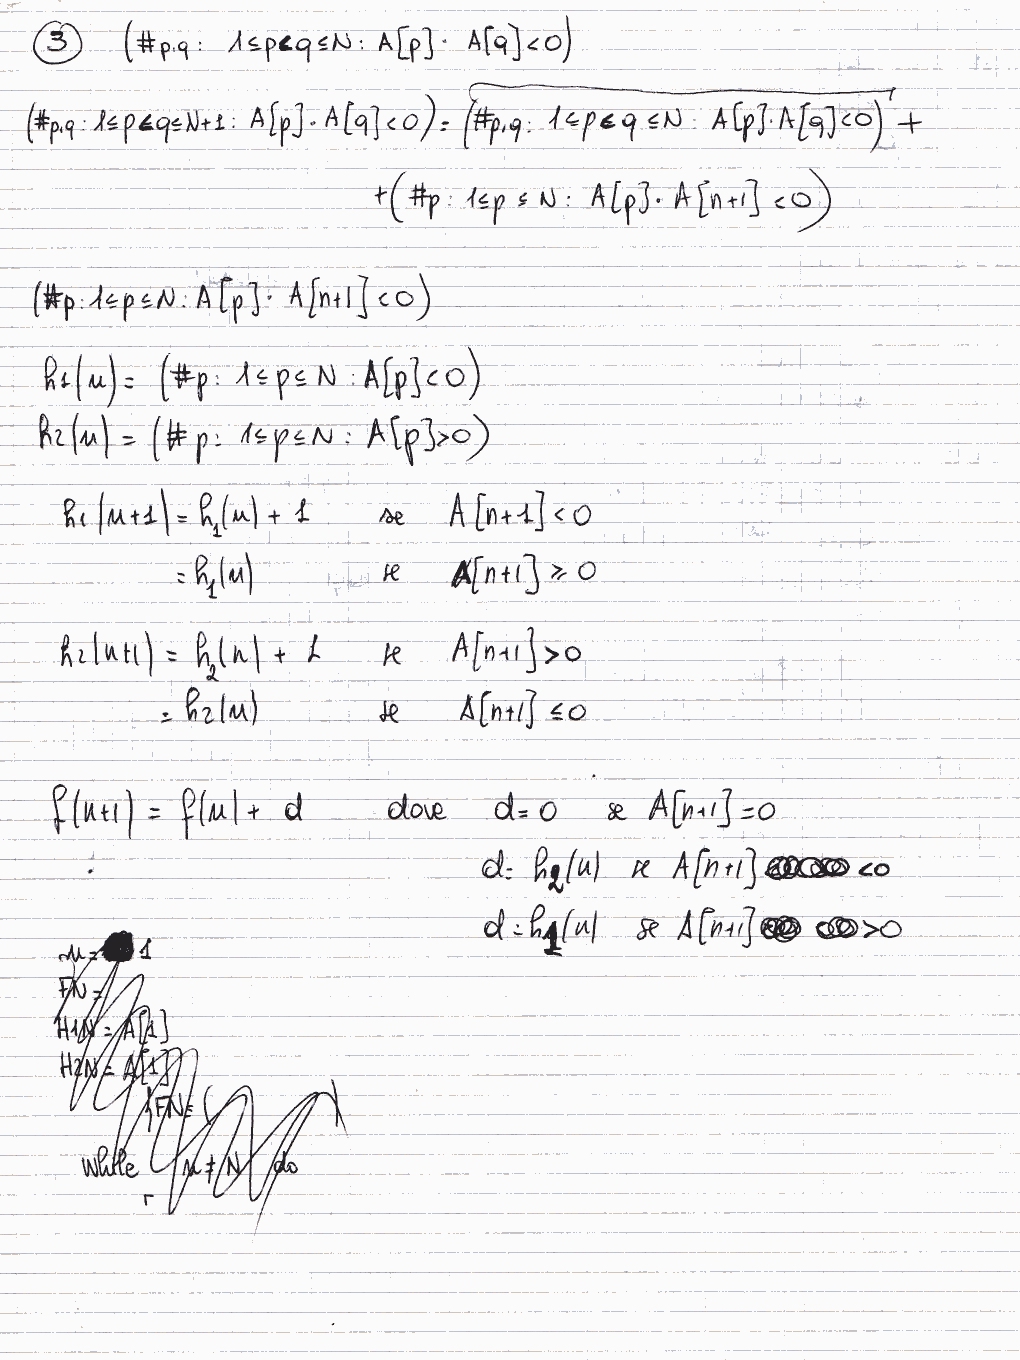 3 (#p,q: 1≤p<q≤N: A[p]· A[q]<0)
(#p,q: 1≤p<q≤N+1: A[p]·A[q]<0) = (#p,q: 1≤p<q≤N: A[p]·A[q]<0) +
+(#p: 1≤p≤N: A[p]· A[n+1]<0)
(#p: 1≤p≤N: A[p]· A[n+1]<0)
h1(n)= (#p: 1≤p≤N: A[p]<0)
h2(n)= (#p: 1≤p≤N: A[p]>0)
h1(n+1)= h1(n)+1 se A[n+1]<0
= h1(n) se A[n+1]≥0
h2(n+1)= h2(n)+1 se A[n+1]>0
= h2(n) se A[n+1]≤0
f(n+1) = f(n)+ d dove d=0 se A[n+1]=0
d= h2(n) se A[n+1] <0
d= h1(n) se A[n+1] >0
n= 1
FN=
H1N= A[1]
H2N= A[1]
FN= (
while n≠N do